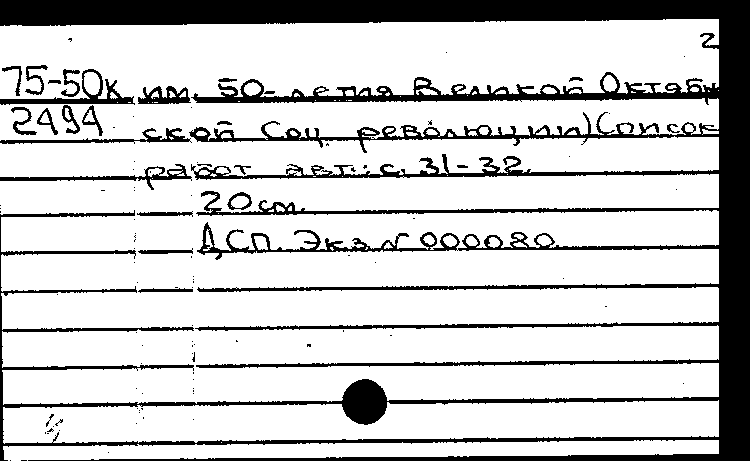 2
75-50к им. 50-летия Великой Октябрь
2494 ской Соц. революции) Список
работ авт.: с. 31-32.
20 см.
ДСП. Экз № 000080